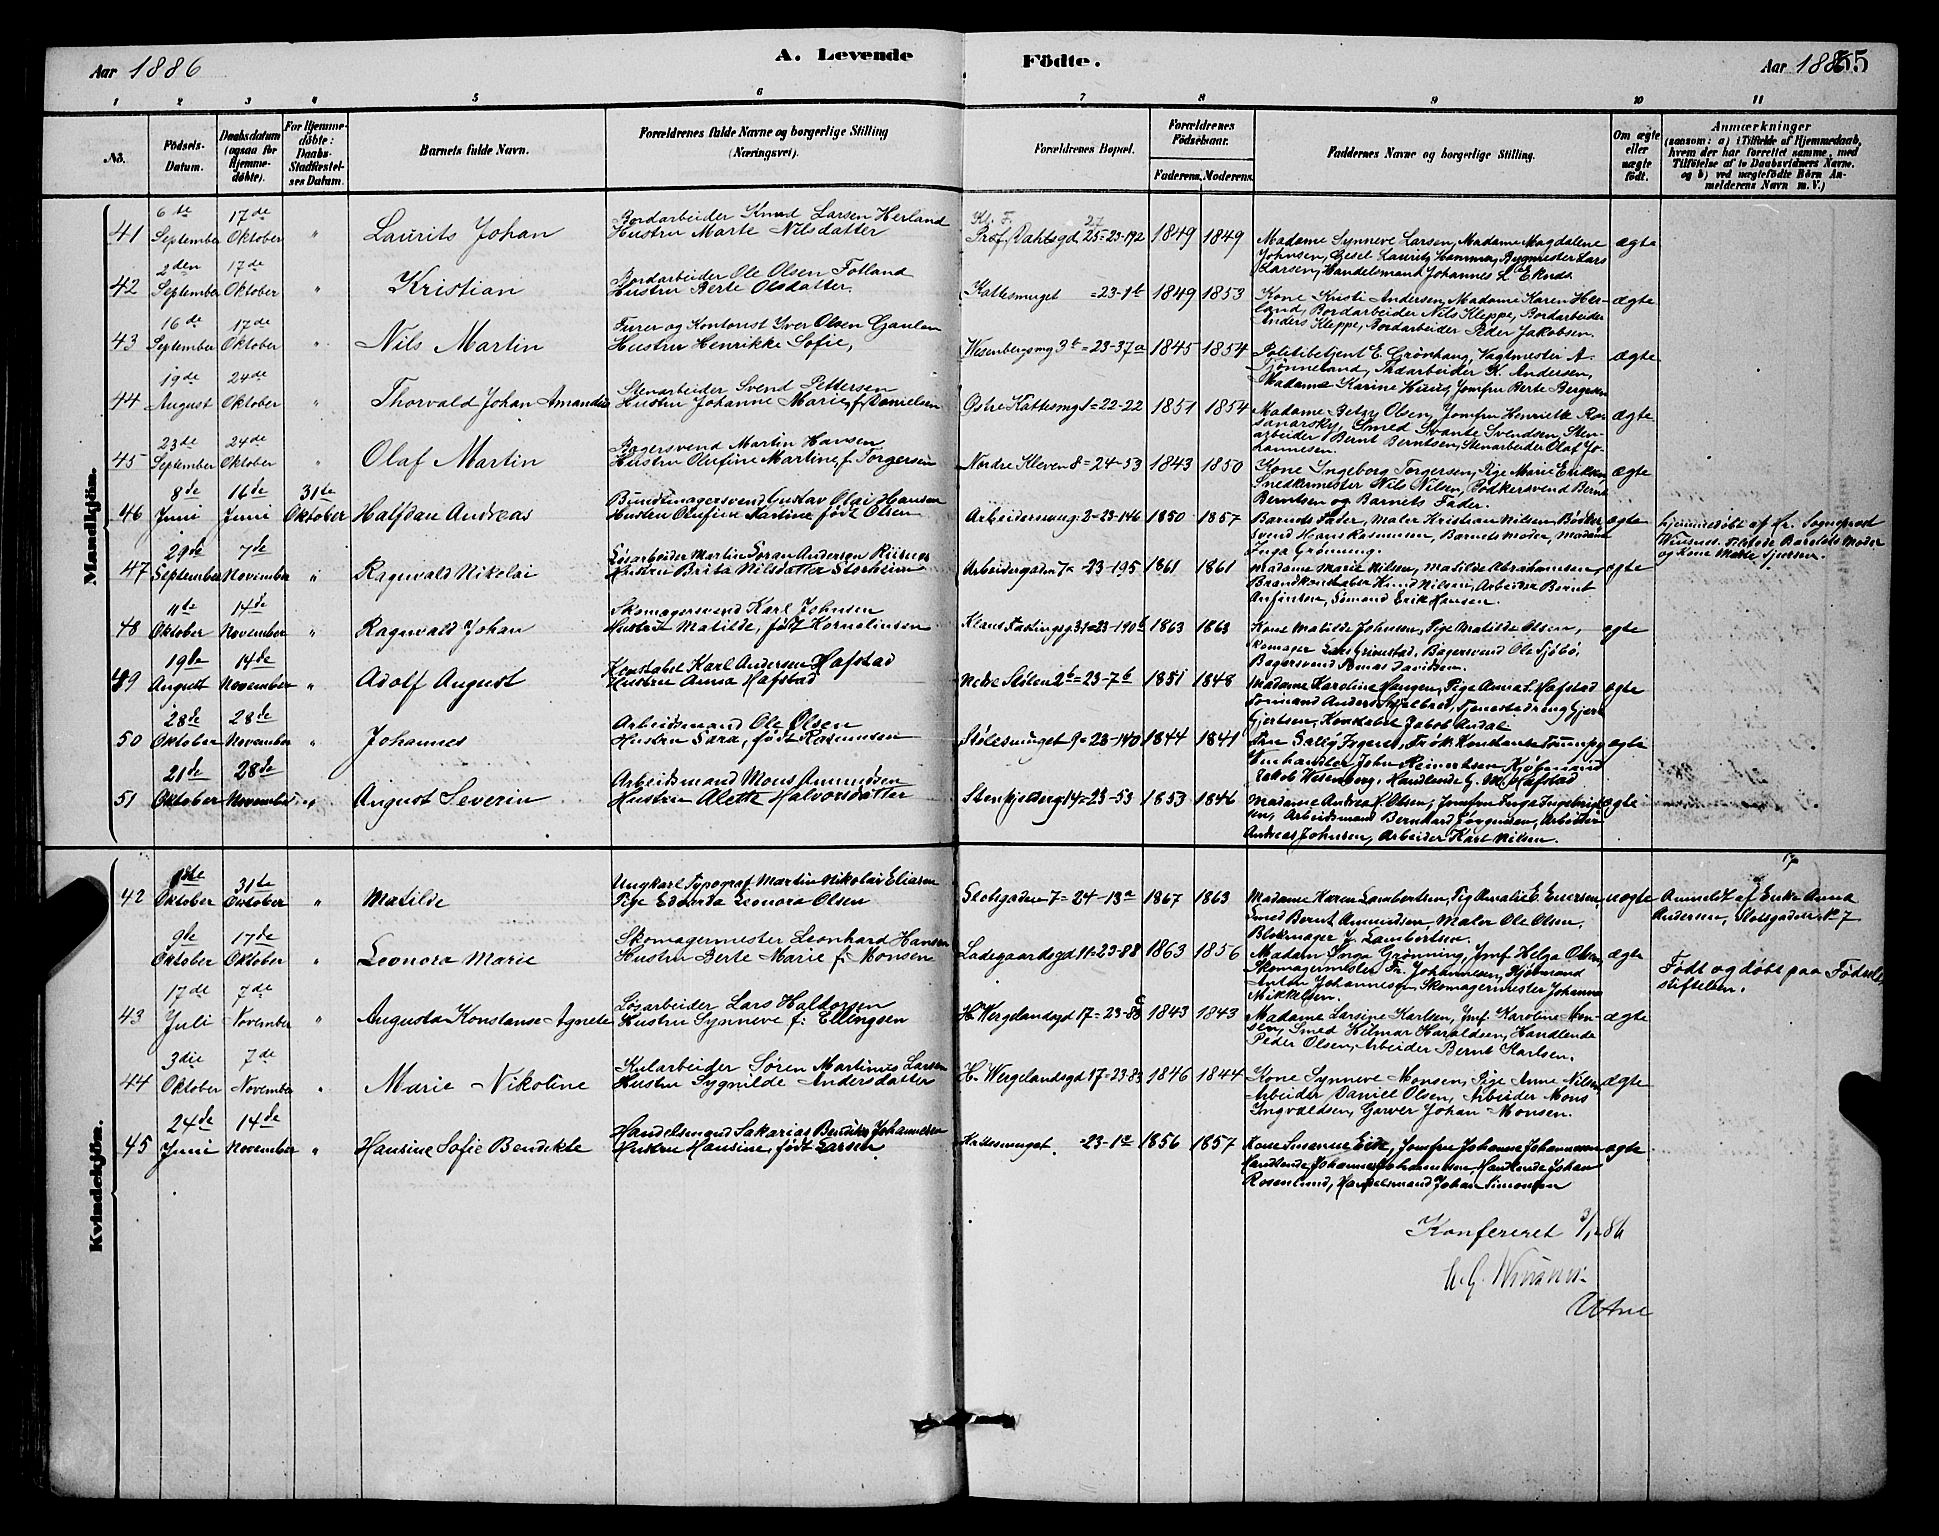 Aar 1886
A. Levende Födte.
Aar 1886
55
1 2 3 4 5 6 7 8 9 10 11
No.
Födsels-Datum.
Daabsdatum (ogsaa for Hjemme-döbte).
For Hjemme-döbte: Daabs-Stadfæstelses Datum.
Barnets fulde Navn.
Forældrenes fulde Navne og borgerlige Stilling (Næringsvei).
Forældrenes Bopæl.
Forældrenes Födselsaar.
Faderens. Moderens.
Faddernes Navne og borgerlige Stilling.
Om ægte eller uægte födt.
Anmærkninger
(saasom: a) i Tilfælde af Hjemmedaab, hvem der har forrettet samme, med Tilföielse af to Daabsvidners Navne. og b) ved uægtefödte Börn Anmelderens Navn m. V.)
Mandkjön.
41 6te September 17de Oktober " Laurits Johan
Bordarbeider Knud Larsen Herland
Hustru Marte Nilsdatter
Prof. Dahlsgd 25=23-192 1849 1849
Madame Synneve Larsen, Madame Magdalene
Johnsen, Gesel Laurits Hamma, Bygmester Lars
Larsen, Handelsmand Johannes L. Eknes
ægte
42 2den September 17de Oktober " Kristian
Bordarbeider Ole Olsen Fotland
Hustru Berte Olsdatter.
Kattesmuget =23-1b 1849 1853
Kone Kristi Andersen, Madame Karen Her-
land, Bordarbeider Nils Kleppe, Bordarbeider
Anders Kleppe, Bordarbeider Peder Jakobsen.
ægte
43 16de September 17de Oktober " Nils Martin
Furer og Kontorist Iver Olsen Gaulen
Hustru Henrikke Sofie,
Wesenbergsmg 3b=23-37a 1845 1854
Politibetjent E. Grönhaug, Vagtmester A.
Tjönneland, Andersen,
Madame Karine Huus, Jomfru Berte Bergesen
ægte
44 19de August 24de Oktober " Thorvald Johan Amandus
Stenarbeider Svend Pettersen
Hustru Johanne Marie, f. Danielsen
Östre Kattesmg 1=22-22 1851 1854
Madame Betzy Olsen, Jomfru Henriette
Smed Svante Svendsen Sten-
arbeider Bernt Berntsen, Stenarbeider Olaf Jo-
hannesen.
ægte
45 23de September 24de Oktober " Olaf Martin
Bagersvend Martin Hansen
Hustru Olufine Martine, f. Torgersen
Nordre Kleven 8=24-53 1843 1850
Kone Ingeborg Torgersen, Pige Marie Eriksen,
Snedkermester Nils Nilsen, Bödkersvend Bernt
Berntsen og Barnets Fader.
ægte
46 8de Juni 16de Juni 31te Oktober Halfdan Andreas
Bundtmagersvend Gustav Olai Hansen
Hustru Olufine Martine født Olsen
Arbeidersmug 2-23-146 1850 1857
Barnets Fader, Maler Kristian Nilsen, Bødker-
svend Hans Rasmussen, Barnets Moder, Madame
Inga Grønning.
ægte
hjemmedöbt af Hr. Sogneprest
Barnets Moder
og Kone Marte
47 29de September 7de November " Ragnvald Nikolai
Løsarbeider Martin Søran Andersen
Hustru Brita Nilsdatter Storheim
Arbeidergaden 7a-23-195 1861 1861
Madame Marie Nilsen, Matilde Abrahamsen,
Brandkonstabel Knud Nilsen, Arbeider Bernt
Anfinsen, Sömand Erik Hansen.
ægte
48 11te Oktober 14de November " Ragnvald Johan
Skomagersvend Karl Johnsen
Hustru Matilde, født Korneliusen
1863 1863
Kone Matilde Johnsen, Pige Matilde Olsen,
Skomager Lars Grimstad, Bagersvend Ole
Bagersvend Tomas Davidsen.
ægte
49 19de August 14de November " Adolf August
Konstabel Karl Andersen Hafstad
Hustru Anna Hafstad
Nedre Stölen 2b=23-7b 1851 1848
Madame Karoline Haugen, Pige Anna L. Hafstad
Formand Anders Tjenestedreng Gjert
Gjertsen, Konstabel Jakob Ardal
ægte
50 28de Oktober 28de November " Johannes
Arbeidsmand Ole Olsen
Hustru Sara, født Rasmussen
Stölesmuget 9=23-140 1844 1841
Fru Sally Frøk. Konstanse
Vinhandler John Reinertsen Kjöbmand
Jakob Wesenberg, Handlende G. M. Hafstad
ægte
51 21de Oktober 28de November " August Severin
Arbeidsmand Mons Amundsen
Hustru Alette Halvorsdatter
Stenkjelderg 14-23-53 1853 1846
Madame Andrea Olsen, Jomfru Inga Ingebrigt-
sen, Arbeidsmand Bernhard Jörgensen, Arbeider
Andreas Johnsen, Arbeider Karl Nilsen.
ægte
Kvindekjön.
42 Oktober 31te Oktober " Matilde
Ungkarl Typograf Martin Nikolai Eliasen
Pige Edvarda Leonora Olsen
Slotsgaden 7-24-13a 1867 1863
Madame Karen Lambertsen, Pige Amalie E. Eversen,
Smed Bernt Amundsen, Maler Ole Olsen,
Blokmager J. Lambertsen.
uægte
Anmeldt af Enke Anna
Andersen, Slotsgaden No 7
9de Oktober 17de Oktober " Leonora Marie
Skomagermester Leonhard Hansen
Hustru Berte Marie f. Monsen
Ladegaardsgd 11=23-88 1863 1856
Madam Inga Grönning, Jmf. Helga Olsen,
Skomagermester Fr. Johannesen, Kjöbmand
Anton Johannesen Skomagermester Johannes
Mikkelsen.
ægte
Født og døbt paa Födsels-
stiftelsen.
43 17de Juli 7de November " Augusta Konstanse Agnete
Løsarbeider Lars Haldorsen
Hustru Synneve f: Ellingsen
H. Wergelandsgd 17=23-83 1843 1843
Madame Larsine Karlsen, Jmf. Karoline Mon-
sen, Smed Hilmar Haraldsen, Handlende
Peder Olsen, Arbeider Bernt Karlsen.
ægte
44 3die Oktober 7de November " Marie Nikoline
Kularbeider Søren Martinius Larsen
Hustru Sygnilde Andersdatter
H. Wergelandsgd 17=23-83 1846 1844
Kone Synneve Monsen, Pige Anne Nilsen,
Arbeider Daniel Olsen, Arbeider Mons
Ingvaldsen, Garver Johan Monsen.
ægte
45 24de Juni 14de November " Hansine Sofie Bendikte
Handelsmand Sakarias Bendiks Johannesen
Hustru Hansine, født Larsen.
Kattesmuget. =23-1a 1856 1857
Kone Susanne Eide, Jomfru Johanne Johannesen
Handlende Johannes Johannesen, Handlende Johan
Rosenlund, Handelsmand Johan Simonsen
ægte
Konfereret 3/12 86